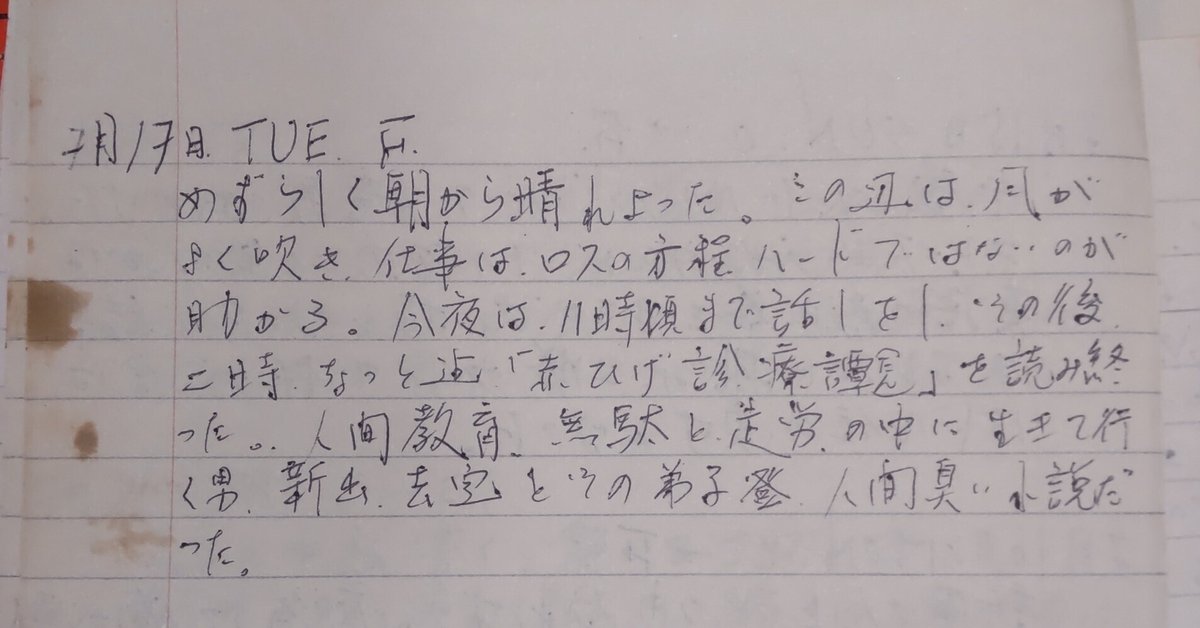 7月17日. TUE.
めずらしく朝から晴れよった。この辺は、風が
よく吹き、仕事は、ロスの方程ハードではないのが
助かる。今夜は、11時頃まで話しをし、その後、
二時、ちっと迄、「赤ひげ診療譚」を読み終
った。人間教育、無駄と、徒労の中に生きて行
く男、新出、去定とその弟子登、人間臭い小説だ
った。